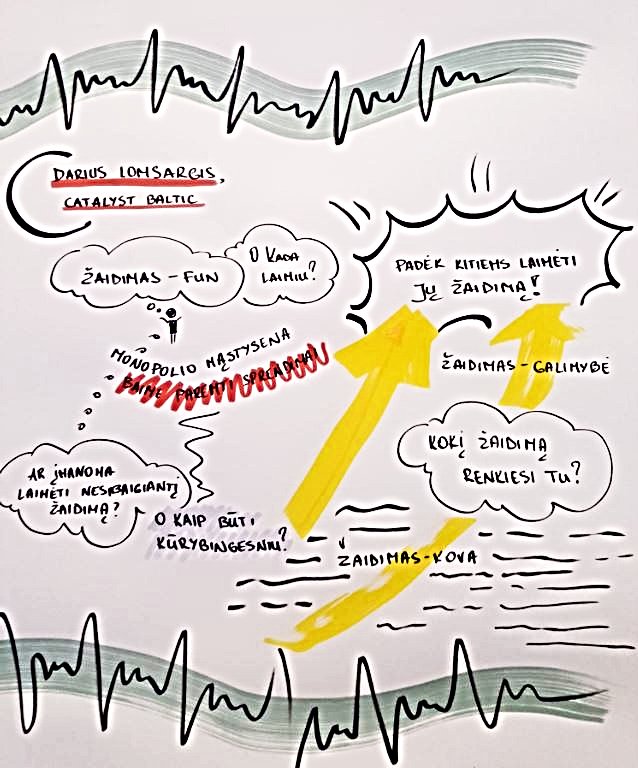 DARIUS LOMSARGIS,
CATALYST BALTIC
ŽAIDIMAS - FUN
O KADA
LAIMIU?
PADĖK KITIEMS LAIMĖTI
JŲ ŽAIDIMĄ!
MONOPOLIO MĄSTYSENA
BAIME PAREMTI SPRENDIMAI
ŽAIDIMAS - GALIMYBĖ
KOKĮ ŽAIDIMĄ
RENKIESI TU?
AR ĮMANOMA
LAIMĖTI NESIBAIGIANTĮ
ŽAIDIMĄ?
O KAIP BŪTI
KŪRYBINGESNIU?
ŽAIDIMAS - KOVA